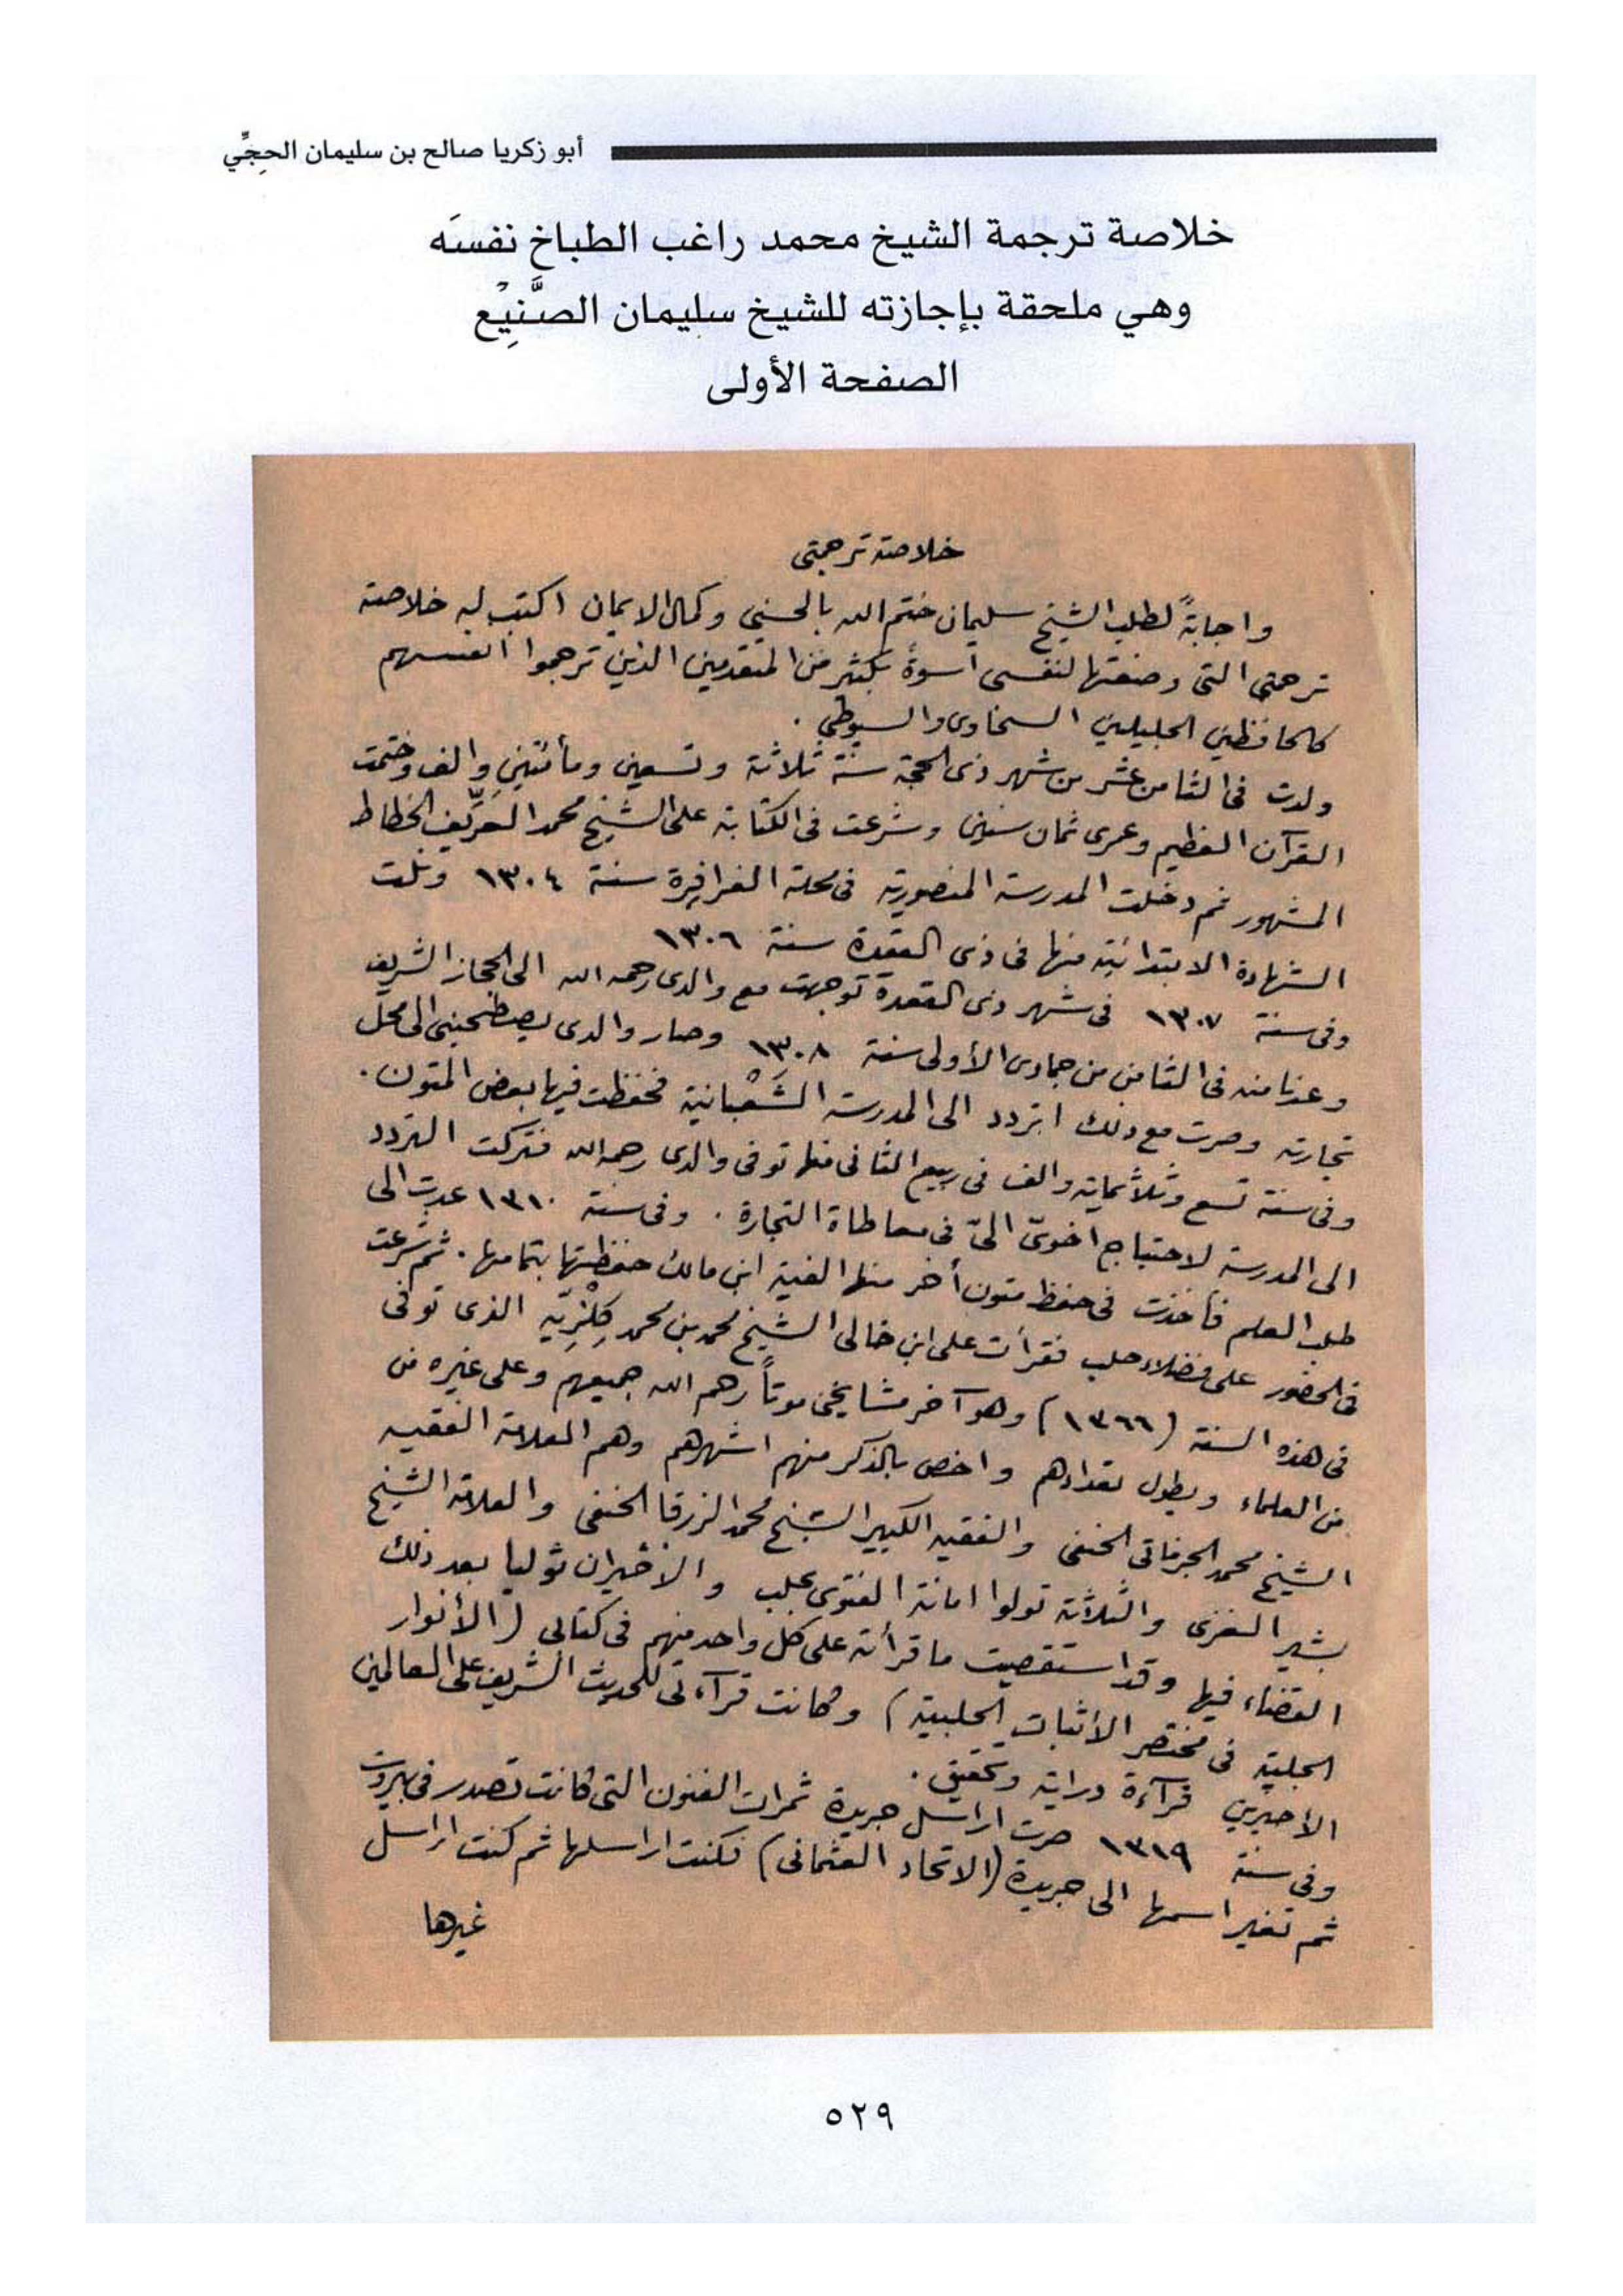 أبو زكريا صالح بن سليمان الحِجِّي
خلاصة ترجمة الشيخ محمد راغب الطباخ نفسَه
وهي ملحقة بإجازته للشيخ سليمان الصَّنِيْع
الصفحة الأولى
خلاصة ترجمتى
واجابةً لطلب الشيخ سليمان ختم الله بالحسنى وكمال الايمان اكتب له خلاصة
ترجمتى التى وضعتها لنفسى أسوةً بكثير من المتقدمين الذين ترجموا انفسهم
كالحافظين الجليلين السخاوى والسيوطى .
ولدت فى الثامن عشر من شهر ذى الحجة سنة ثلاثة وتسعين ومأتين والف وختمت
القرآن العظيم وعمرى ثمان سنين وشرعت فى الكتابة على الشيخ محمد العَرِّيف الخطاط
المشهور ثم دخلت المدرسة المنصورية فى محلة الفرافرة سنة ١٣٠٤ ونلت
الشهادة الابتدائية منها فى ذى القعدة سنة ١٣٠٦
وفى سنة ١٣٠٧ فى شهر ذى القعدة توجهت مع والدى رحمه الله الى الحجاز الشريف
وعدنا منه فى الثامن من جمادى الأولى سنة ١٣٠٨ وصار والدى يصطحبنى الى محل
تجارته وصرت مع ذلك اتردد الى المدرسة الشَعْبانية فحفظت فيها بعض المتون .
وفى سنة تسع وثلاثماية والف فى ربيع الثانى منها توفى والدى رحمه الله فتركت التردد
الى المدرسة لاحتياج اخوىّ الىّ فى معاطاة التجارة . وفى سنة ١٣١٠ عدت الى
طلب العلم فأخذت فى حفظ متون أخر منها الفية ابن مالك حفظتها بتمامها . ثم شرعت
فى الحضور على فضلاء حلب فقرأت على ابن خالى الشيخ محمد بن محمد كِلْزِيّه الذى توفى
فى هذه السنة (١٣٦٦) وهو آخر مشايخى موتاً رحمهم الله جميعهم وعلى غيره من
من العلماء ويطول تعدادهم واخص بالذكر منهم اشهرهم وهم العلامة الفقيه
الشيخ محمد الجزماتى الحنفى والفقيه الكبير الشيخ محمد الزرقا الحنفى والعلامة الشيخ
بشير الغزى والثلاثة تولوا امانة الفتوى بحلب والأخيران توليا بعد ذلك
القضاء فيها وقد استقصيت ما قرأته على كل واحد منهم فى كتابى (الأنوار
الجلية فى مختصر الأثبات الحلبية) وكانت قرآءتى للحديث الشريف على العالمين
الاخيرين قرآءة دراية وتحقيق .
وفى سنة ١٣١٩ صرت اراسل جريدة ثمرات الفنون التى كانت تصدر فى بيروت
ثم تغير اسمها الى جريدة (الاتحاد العثمانى) فكنت اراسلها ثم كنت اراسل
غيرها
٥٢٩